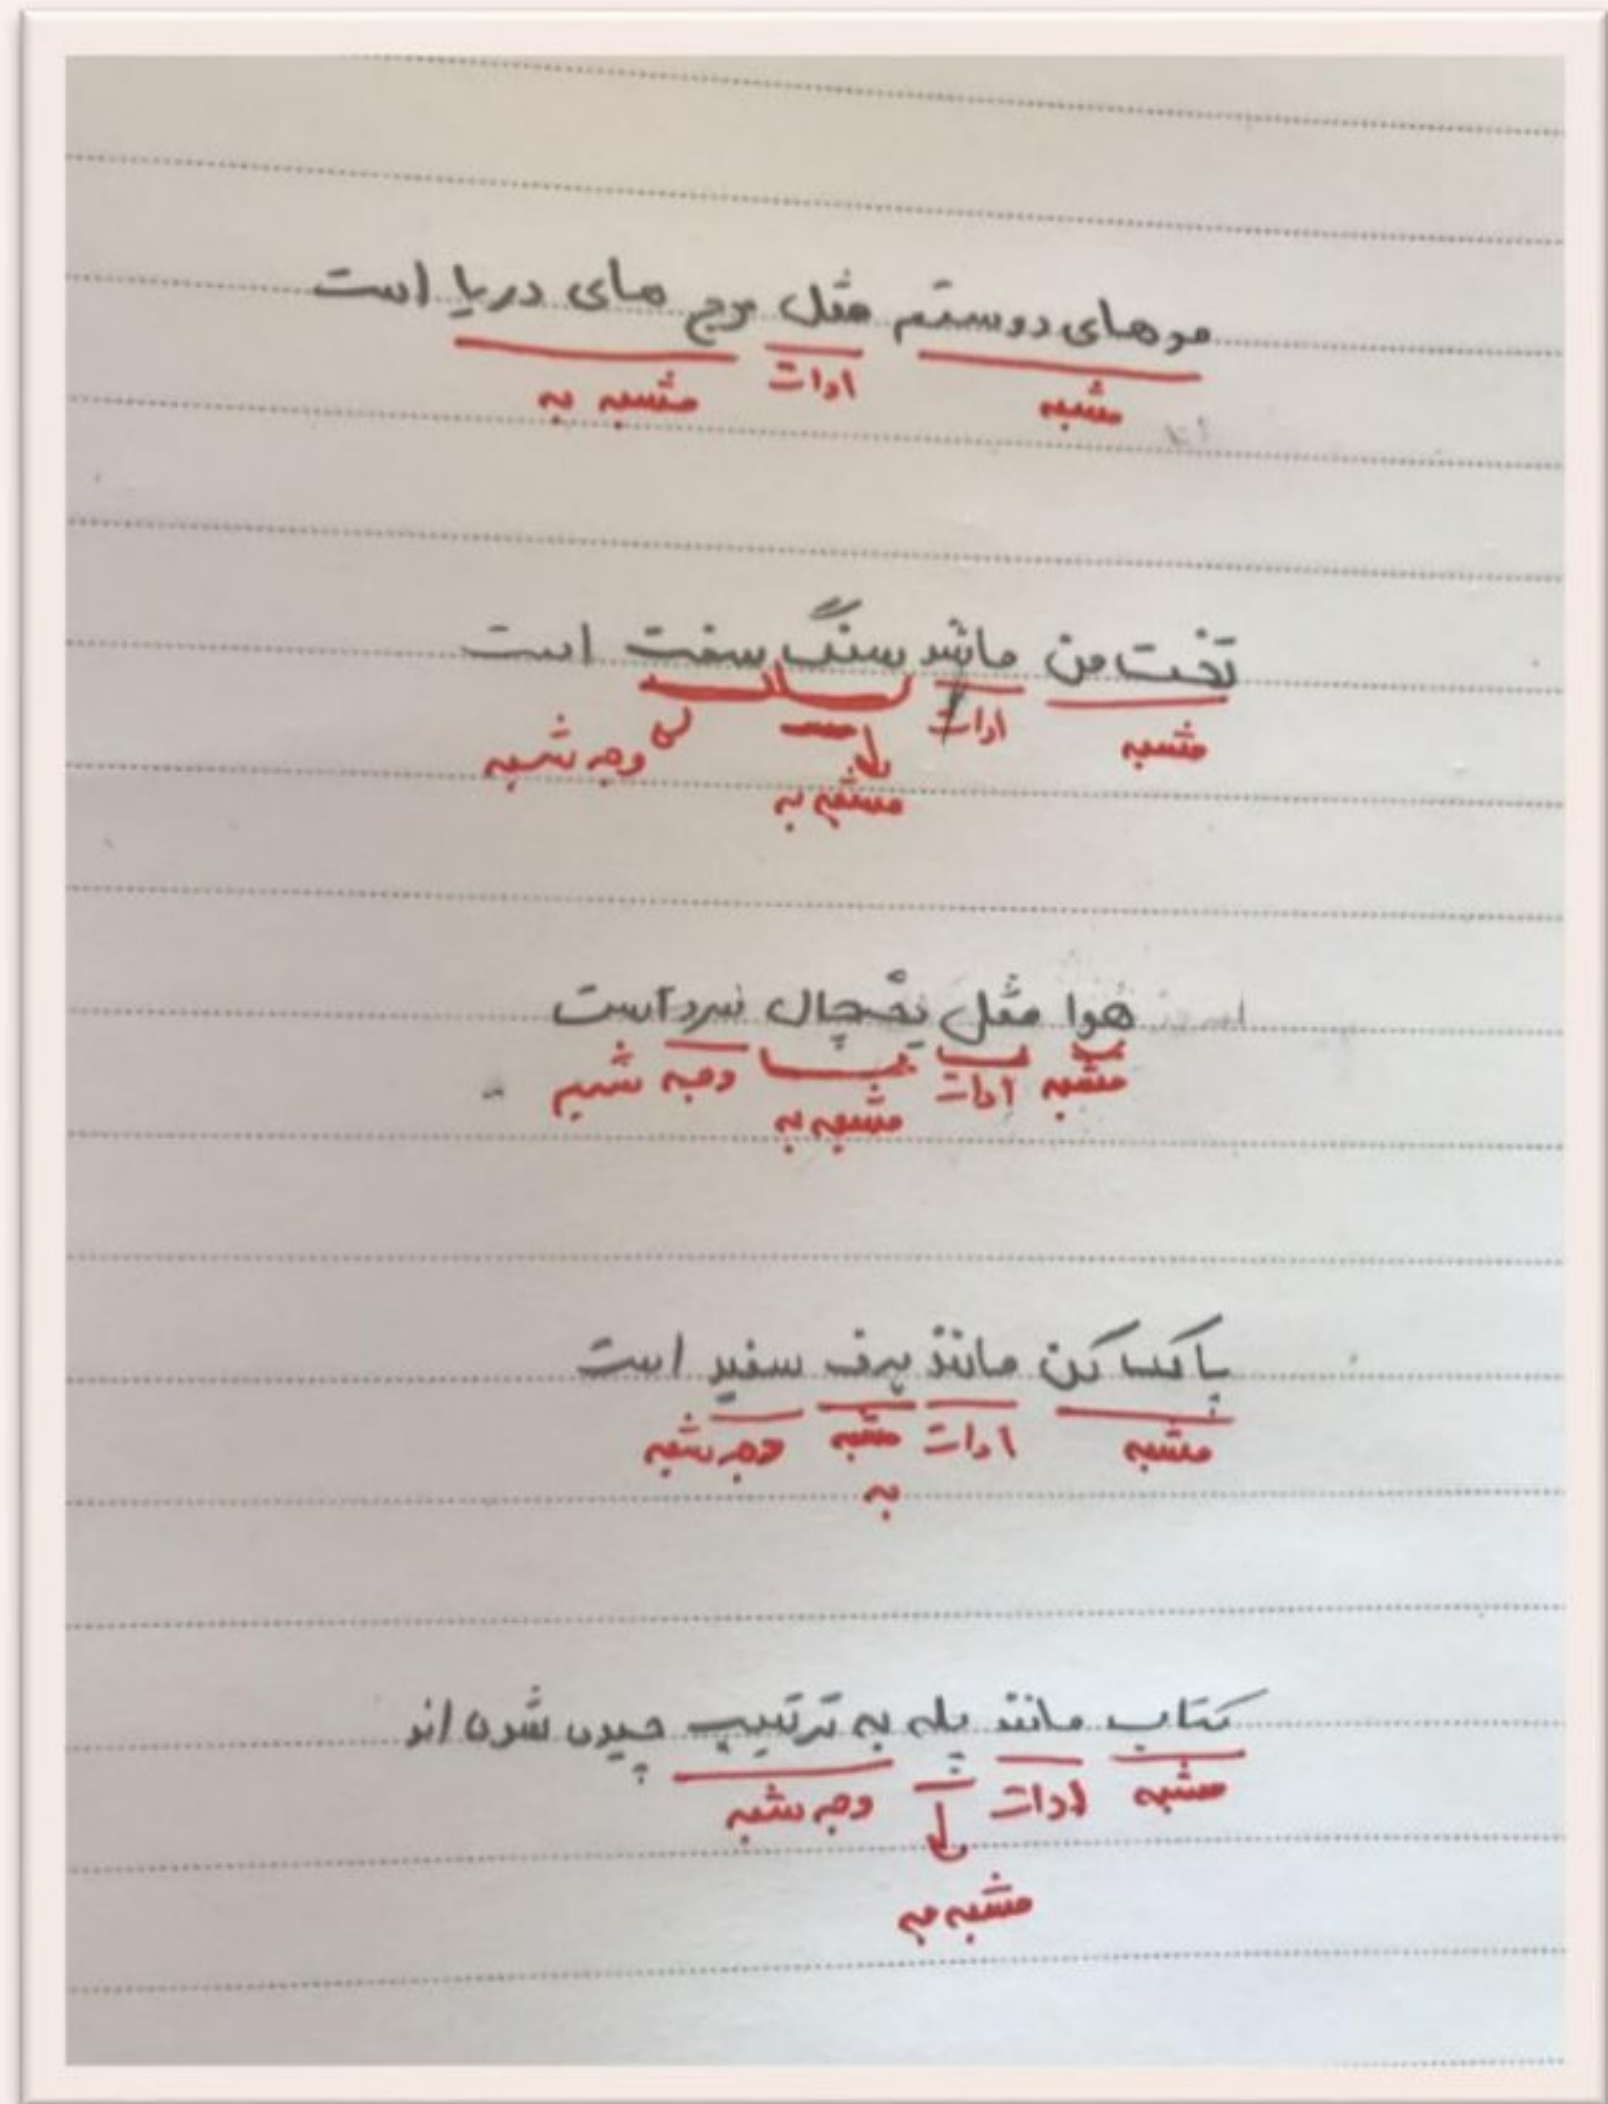 موهای دوستم مثل موج های دریا است
مشبه ادات مشبه به
تخت من مانند سنگ سفت است
مشبه ادات مشبه به وجه شبه
هوا مثل یخچال سرد است
مشبه ادات مشبه به وجه شبه
پاکن من مانند برف سفید است
مشبه ادات مشبه به وجه شبه
کتاب مانند پله به ترتیب چیده شده اند
مشبه ادات مشبه به وجه شبه